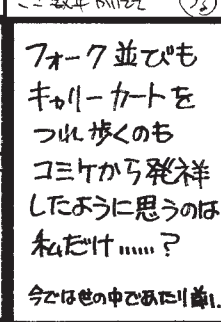 フォーク並びも
キャリーカートを
つれ歩くのも
コミケから発祥
したように思うのは
私だけ……?
今では世の中であたり前。